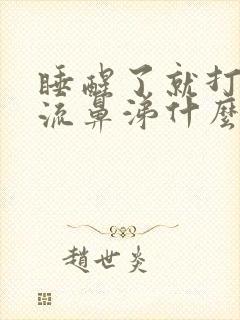 睡醒了就打
流鼻涕什麼
趙世炎